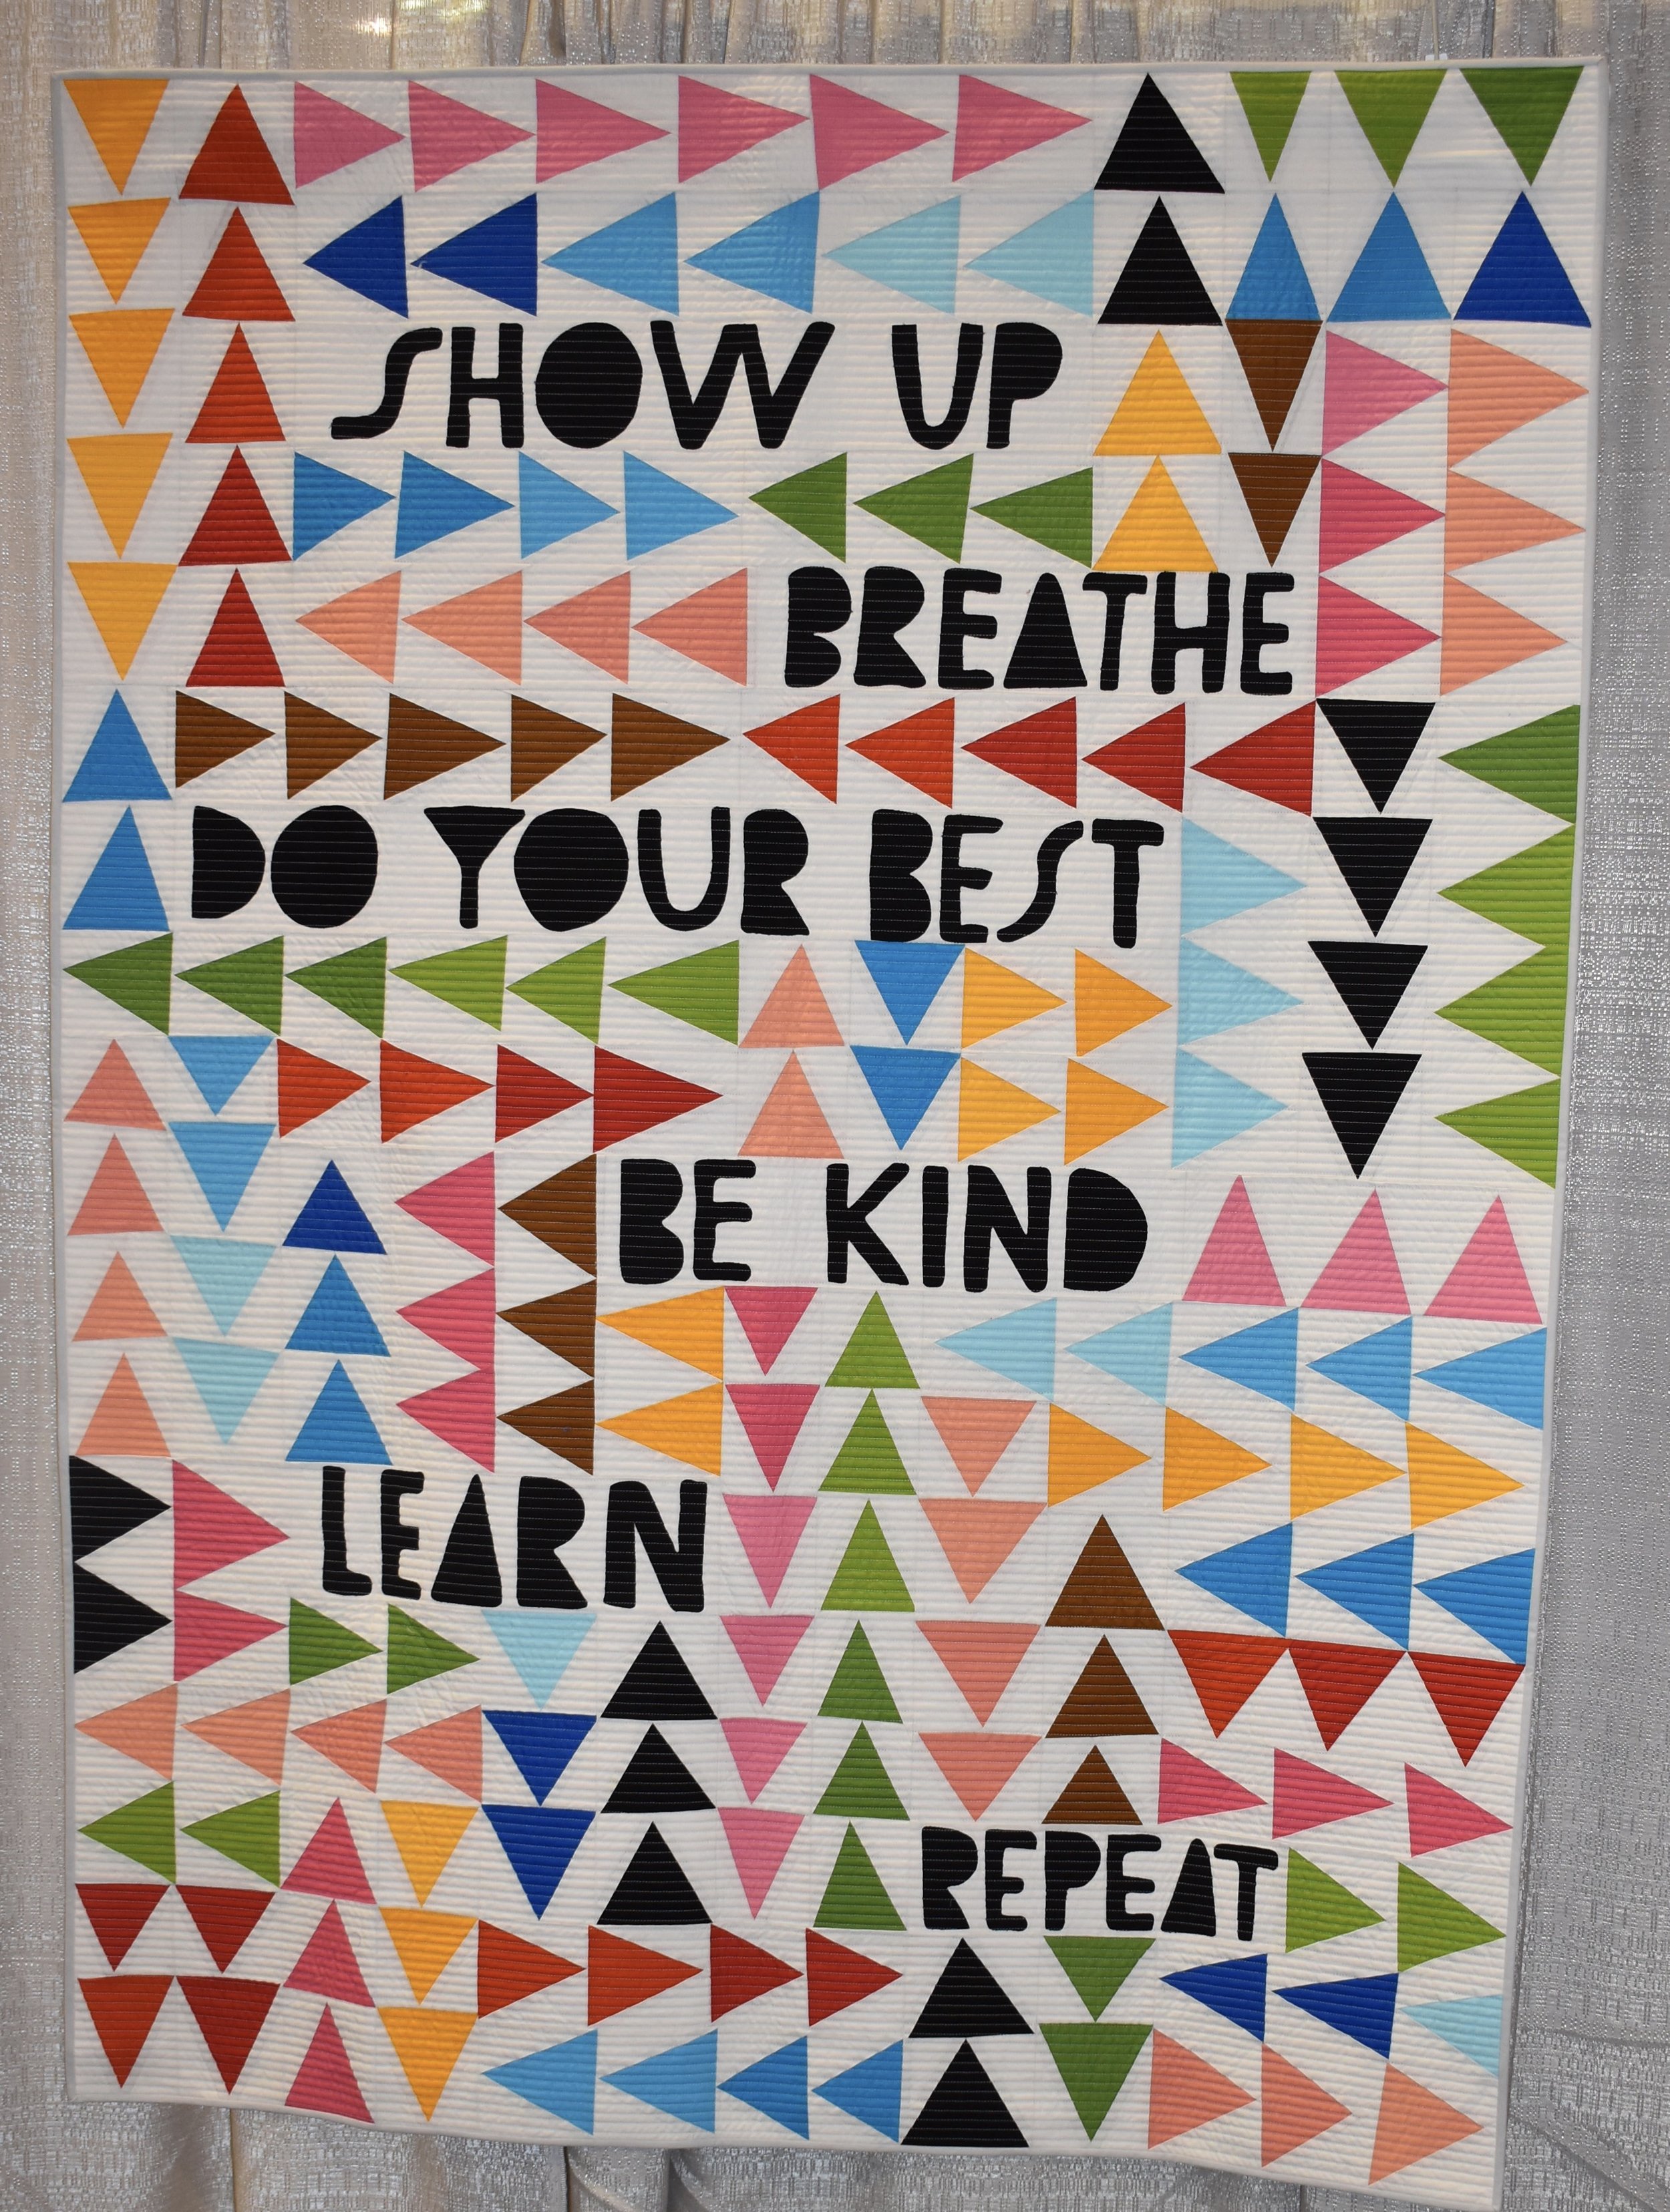 SHOW UP
BREATHE
DO YOUR BEST
BE KIND
LEARN
REPEAT